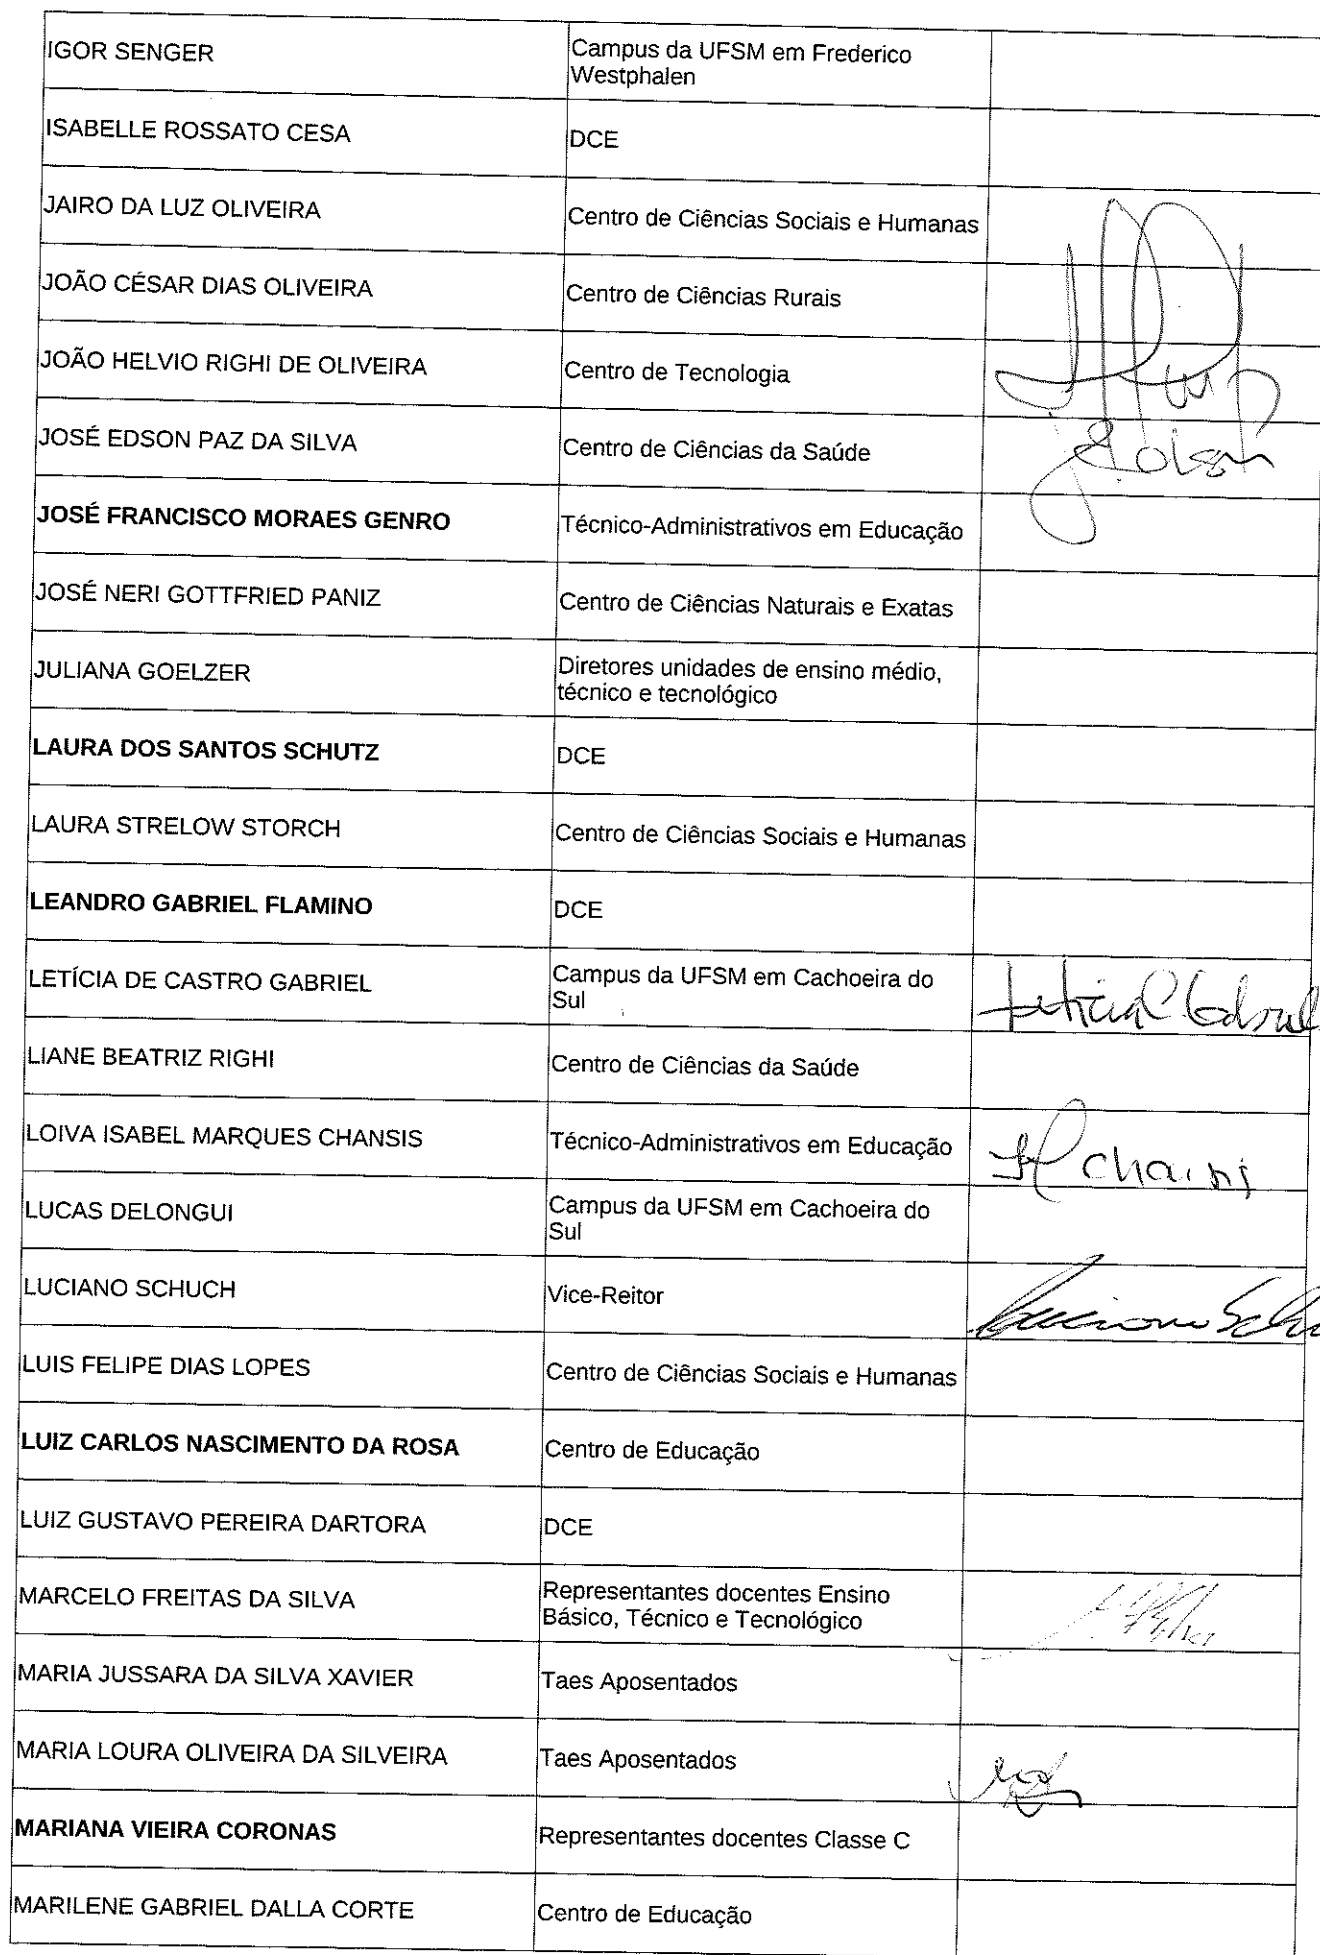 IGOR SENGER
Campus da UFSM em Frederico
Westphalen
ISABELLE ROSSATO CESA
DCE
JAIRO DA LUZ OLIVEIRA
Centro de Ciências Sociais e Humanas
JOÃO CÉSAR DIAS OLIVEIRA
Centro de Ciências Rurais
JOÃO HELVIO RIGHI DE OLIVEIRA
Centro de Tecnologia
JOSÉ EDSON PAZ DA SILVA
Centro de Ciências da Saúde
JOSÉ FRANCISCO MORAES GENRO
Técnico-Administrativos em Educação
JOSÉ NERI GOTTFRIED PANIZ
Centro de Ciências Naturais e Exatas
JULIANA GOELZER
Diretores unidades de ensino médio,
técnico e tecnológico
LAURA DOS SANTOS SCHUTZ
DCE
LAURA STRELOW STORCH
Centro de Ciências Sociais e Humanas
LEANDRO GABRIEL FLAMINO
DCE
LETÍCIA DE CASTRO GABRIEL
Campus da UFSM em Cachoeira do
Sul
LIANE BEATRIZ RIGHI
Centro de Ciências da Saúde
LOIVA ISABEL MARQUES CHANSIS
Técnico-Administrativos em Educação
LUCAS DELONGUI
Campus da UFSM em Cachoeira do
Sul
LUCIANO SCHUCH
Vice-Reitor
LUIS FELIPE DIAS LOPES
Centro de Ciências Sociais e Humanas
LUIZ CARLOS NASCIMENTO DA ROSA
Centro de Educação
LUIZ GUSTAVO PEREIRA DARTORA
DCE
MARCELO FREITAS DA SILVA
Representantes docentes Ensino
Básico, Técnico e Tecnológico
MARIA JUSSARA DA SILVA XAVIER
Taes Aposentados
MARIA LOURA OLIVEIRA DA SILVEIRA
Taes Aposentados
MARIANA VIEIRA CORONAS
Representantes docentes Classe C
MARILENE GABRIEL DALLA CORTE
Centro de Educação